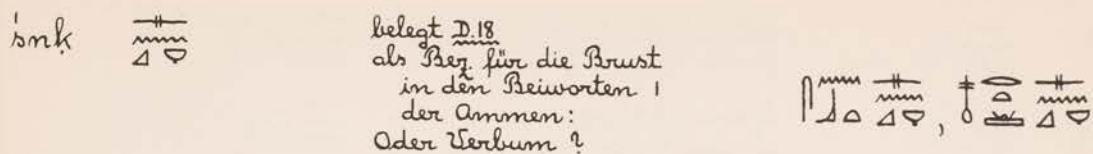 śnḳ 𓊃𓈖𓈎𓂑
belegt D.18
als Bez. für die Brust
in den Beiworten 1
der Ammen:
Oder Verbum ?
𓊃𓈖𓈎𓂑, 𓊃𓈖𓈎𓂑